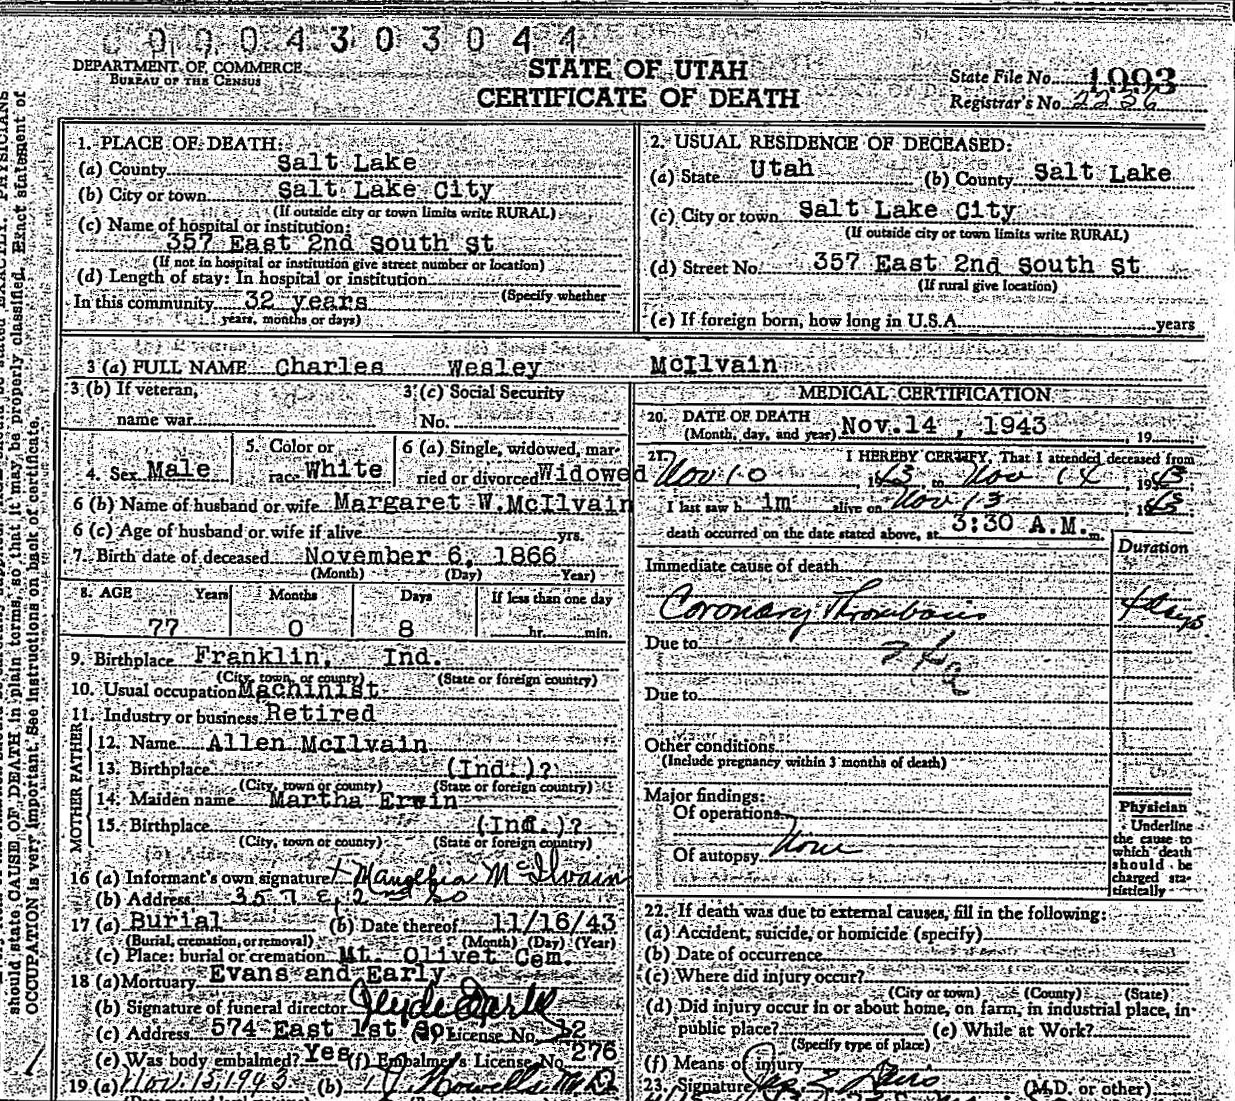 0004303044
DEPARTMENT OF COMMERCE
BUREAU OF THE CENSUS
STATE OF UTAH
CERTIFICATE OF DEATH
State File No. 1993
Registrar's No. 2236
1. PLACE OF DEATH:
(a) County Salt Lake
(b) City or town Salt Lake City
(If outside city or town limits write RURAL)
(c) Name of hospital or institution:
357 East 2nd South St
(If not in hospital or institution give street number or location)
(d) Length of stay: In hospital or institution
(Specify whether
In this community 32 years
years, months or days)
2. USUAL RESIDENCE OF DECEASED:
(a) State Utah (b) County Salt Lake
(c) City or town Salt Lake City
(If outside city or town limits write RURAL)
(d) Street No. 357 East 2nd South St
(If rural give location)
(e) If foreign born, how long in U.S.A. years
3 (a) FULL NAME Charles Wesley McIlvain
3 (b) If veteran,
name war
3 (c) Social Security
No.
4. Sex Male
5. Color or
race White
6 (a) Single, widowed, mar-
ried or divorced Widowed
6 (b) Name of husband or wife Margaret W. McIlvain
6 (c) Age of husband or wife if alive yrs.
7. Birth date of deceased November 6, 1866
(Month) (Day) Year)
8. AGE Years Months Days If less than one day
77 0 8 hr. min.
9. Birthplace Franklin, Ind.
(City, town, or county) (State or foreign country)
10. Usual occupation Machinist
11. Industry or business Retired
FATHER
12. Name Allen McIlvain
13. Birthplace (Ind.)?
(City, town or county) (State or foreign country)
MOTHER
14. Maiden name Martha Erwin
15. Birthplace (Ind.)?
(City, town or county) (State or foreign country)
16 (a) Informant's own signature McIlvain
(b) Address 357 E, 2nd So
17 (a) Burial (b) Date thereof 11/16/43
(Burial, cremation, or removal) (Month) (Day) (Year)
(c) Place: burial or cremation Mt. Olivet Cem.
18 (a) Mortuary Evans and Early
(b) Signature of funeral director Clyde Early
(c) Address 574 East 1st So. License No. 12
(e) Was body embalmed? Yes (f) Embalmer's License No. 276
19 (a) Nov. 15, 1943 (b)
MEDICAL CERTIFICATION
20. DATE OF DEATH
(Month, day, and year) Nov. 14, 1943, 19
21. I HEREBY CERTIFY, That I attended deceased from
Nov 10 1943 to Nov 14, 1943
I last saw him alive on Nov 13 1943
death occurred on the date stated above, at 3:30 A.M. m.
Duration
Immediate cause of death
Coronary Thrombosis days
Due to
Due to
Other conditions
(Include pregnancy within 3 months of death)
Major findings:
Of operations
Of autopsy None
Physician
Underline
the cause to
which death
should be
charged sta-
tistically
22. If death was due to external causes, fill in the following:
(a) Accident, suicide, or homicide (specify)
(b) Date of occurrence
(c) Where did injury occur?
(City or town) (County) (State)
(d) Did injury occur in or about home, on farm, in industrial place, in
public place? (e) While at Work?
(Specify type of place)
(f) Means of injury
23. Signature (M.D. or other)
should state CAUSE OF DEATH in plain terms, so that it may be properly classified. Exact statement of
OCCUPATION is very important. See instructions on back of certificate.